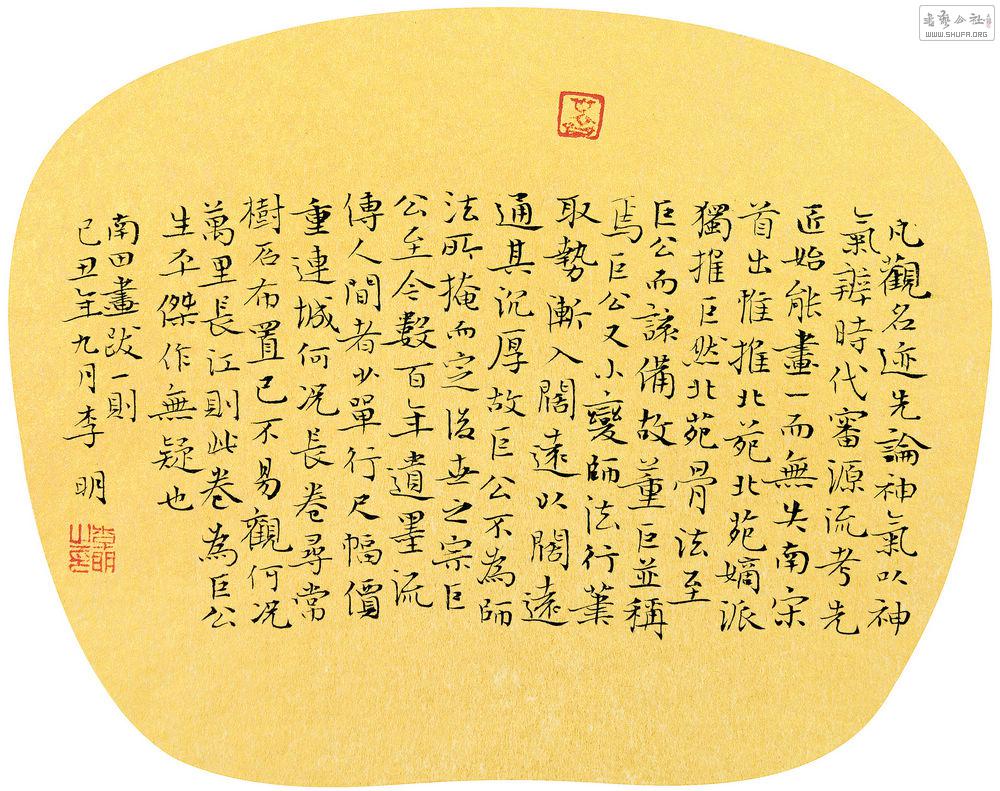 凡觀名迹先論神氣以神
氣辨時代審源流考先
匠始能畫一而無失南宋
首出惟推北苑北苑嫡派
獨推巨然北苑骨法至
巨公而該備故董巨並稱
焉巨公又小變師法行筆
取勢漸入闊遠以闊遠
通其沉厚故巨公不為師
法所掩而定後世之宗巨
公至今數百年遺墨流
傳人間者少單行尺幅價
重連城何況長卷尋常
樹石布置已不易觀何況
萬里長江則此卷為巨公
生平傑作無疑也
南田畫跋一則
己丑年九月李明
李明之印
書藝公社
WWW.SHUFA.ORG